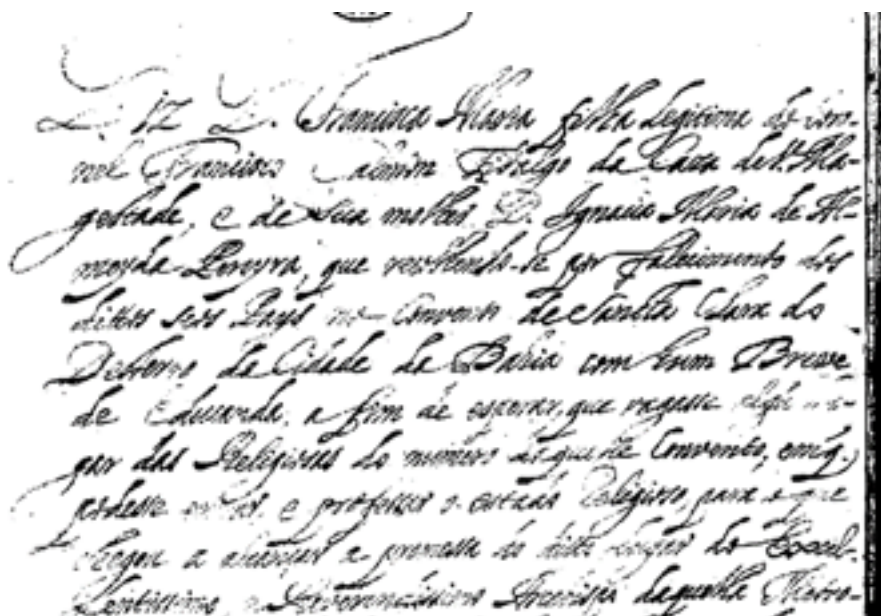 Diz D. Francisca Maria filha legitima do Coro-
nel Francisco Fidalgo da Caza de V. Ma-
gestade, e de sua molher D. Ignacia Maria de Al-
meyda Pereyra, que recolhendo-se por falecimento dos
dittos seos Pays no Convento de Sancta Clara do
Desterro da Cidade da Bahia com hum Breve
de Educanda, a fim de esperar, que vagasse algũ lu-
gar das Religiosas do numero daquelle Convento, em q.
podesse entrar, e professar o estado Religioso, para o que
chegou a alcançar a promessa do ditto lugar do Excel-
lentissimo e Reverendissimo Arcebispo daquella Metro-